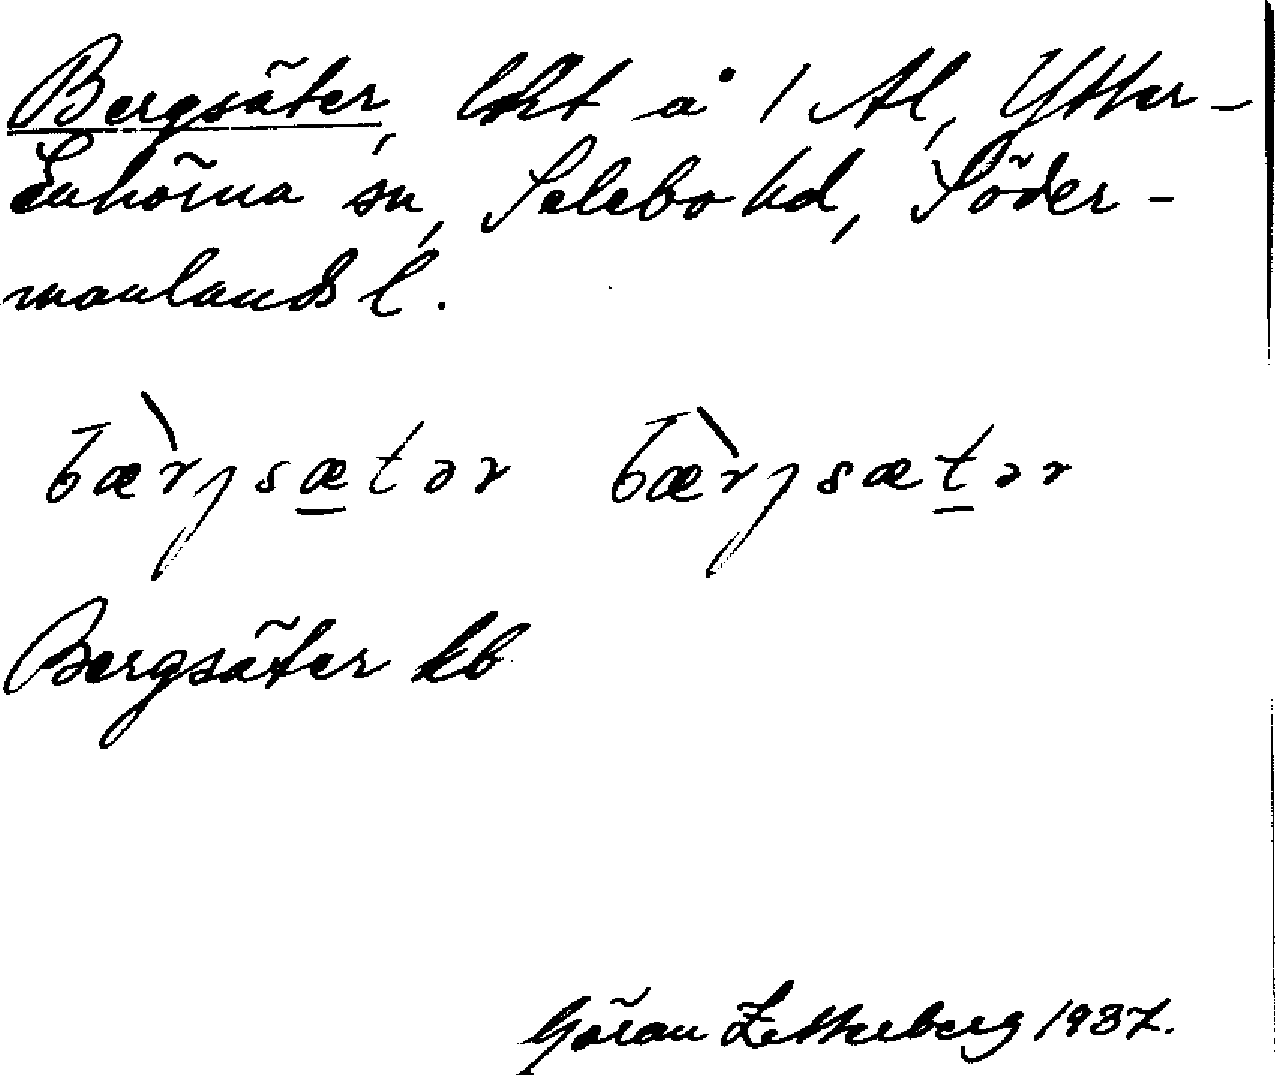 Bergsäter, lht å 1 Al, Ytter-
Enhörna sn, Selebo hd, Söder-
manlands l.
bæ̀rjsæ̲tər bæ̀rjsæt̲ər
Bergsäter kb
Göran Zetterberg 1937.